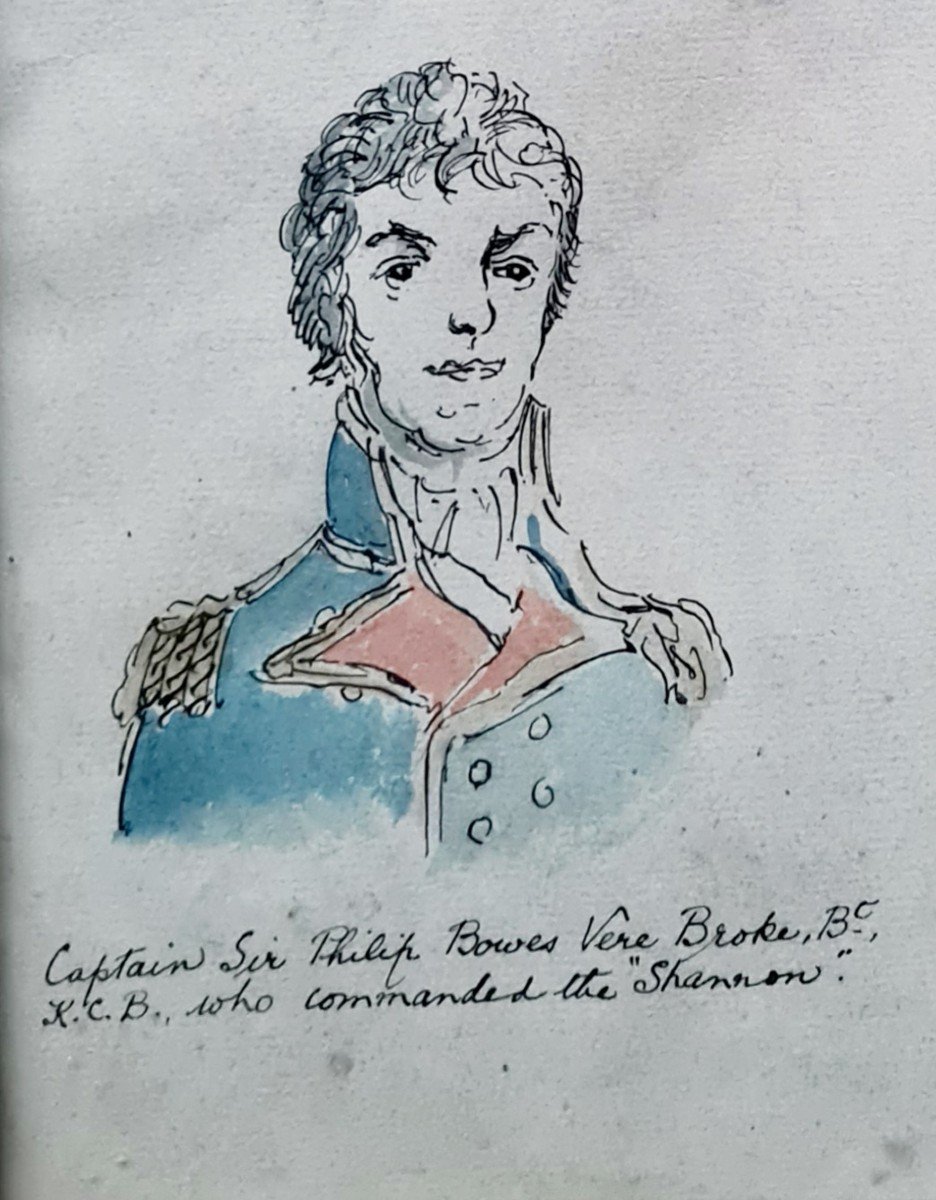 Captain Sir Philip Bowes Vere Broke, Bt,
K.C.B., who commanded the "Shannon".